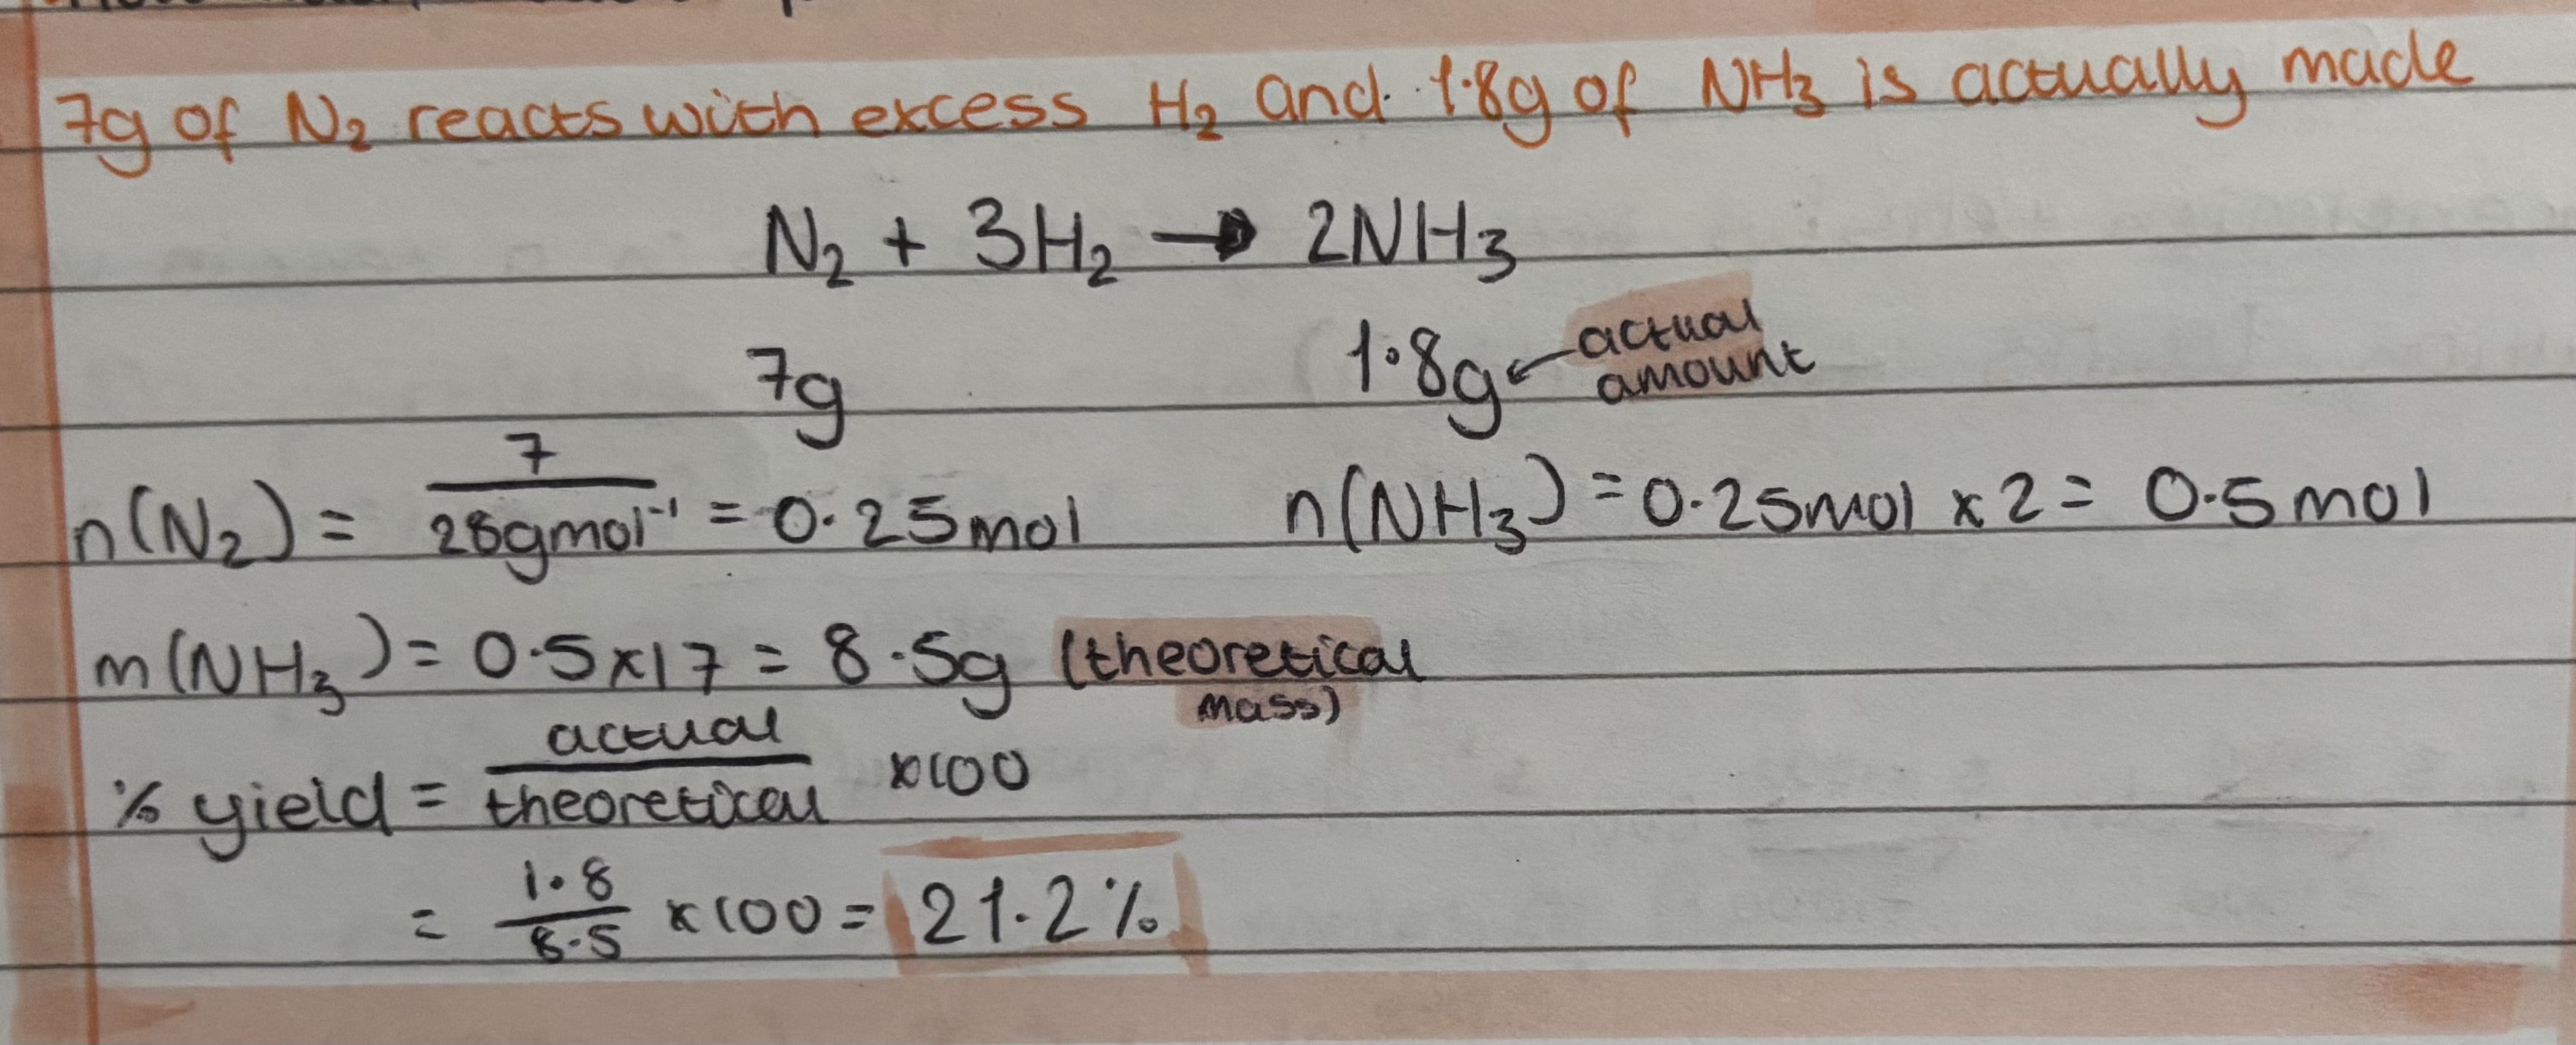 7g of N₂ reacts with excess H₂ and 1.8g of NH₃ is actually made
N₂ + 3H₂ → 2NH₃
7g 1.8g ← actual amount
n(N₂) = 7 / 28gmol⁻¹ = 0.25mol n(NH₃) = 0.25mol x 2 = 0.5mol
m(NH₃) = 0.5x17 = 8.5g (theoretical mass)
% yield = actual / theoretical x100
= 1.8 / 8.5 x100 = 21.2%